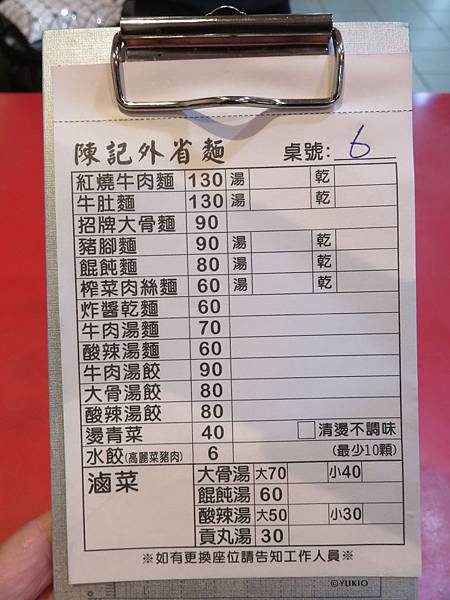 陳記外省麵 桌號: 6
紅燒牛肉麵 130 湯 乾
牛肚麵 130 湯 乾
招牌大骨麵 90
豬腳麵 90 湯 乾
餛飩麵 80 湯 乾
榨菜肉絲麵 60 湯 乾
炸醬乾麵 60
牛肉湯麵 70
酸辣湯麵 60
牛肉湯餃 90
大骨湯餃 80
酸辣湯餃 80
燙青菜 40 清燙不調味
水餃(高麗菜豬肉) 6 (最少10顆)
滷菜 大骨湯 大70 小40
餛飩湯 60
酸辣湯 大50 小30
貢丸湯 30
※如有更換座位請告知工作人員※
©YUKIO